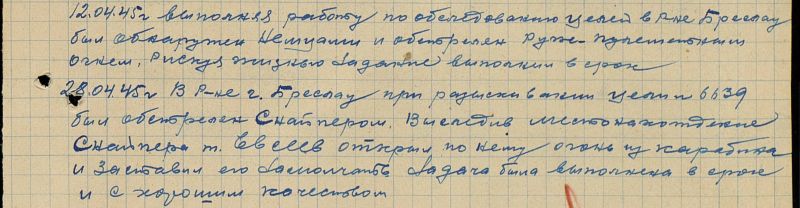 12.04.45г выполняя работу по обследованию целей в р-не Бреслау
был обнаружен немцами и обстрелян руже-пулеметным
огнем, рискуя жизнью задание выполнил в срок
28.04.45г в р-не г. Бреслау при разыскивании цели 6639
был обстрелен снайпером. Выследив местонахождение
снайпера т. Евсеев открыл по нему огонь из карабина
и заставил его замолчать Задача была выполнена в срок
и с хорошим качеством